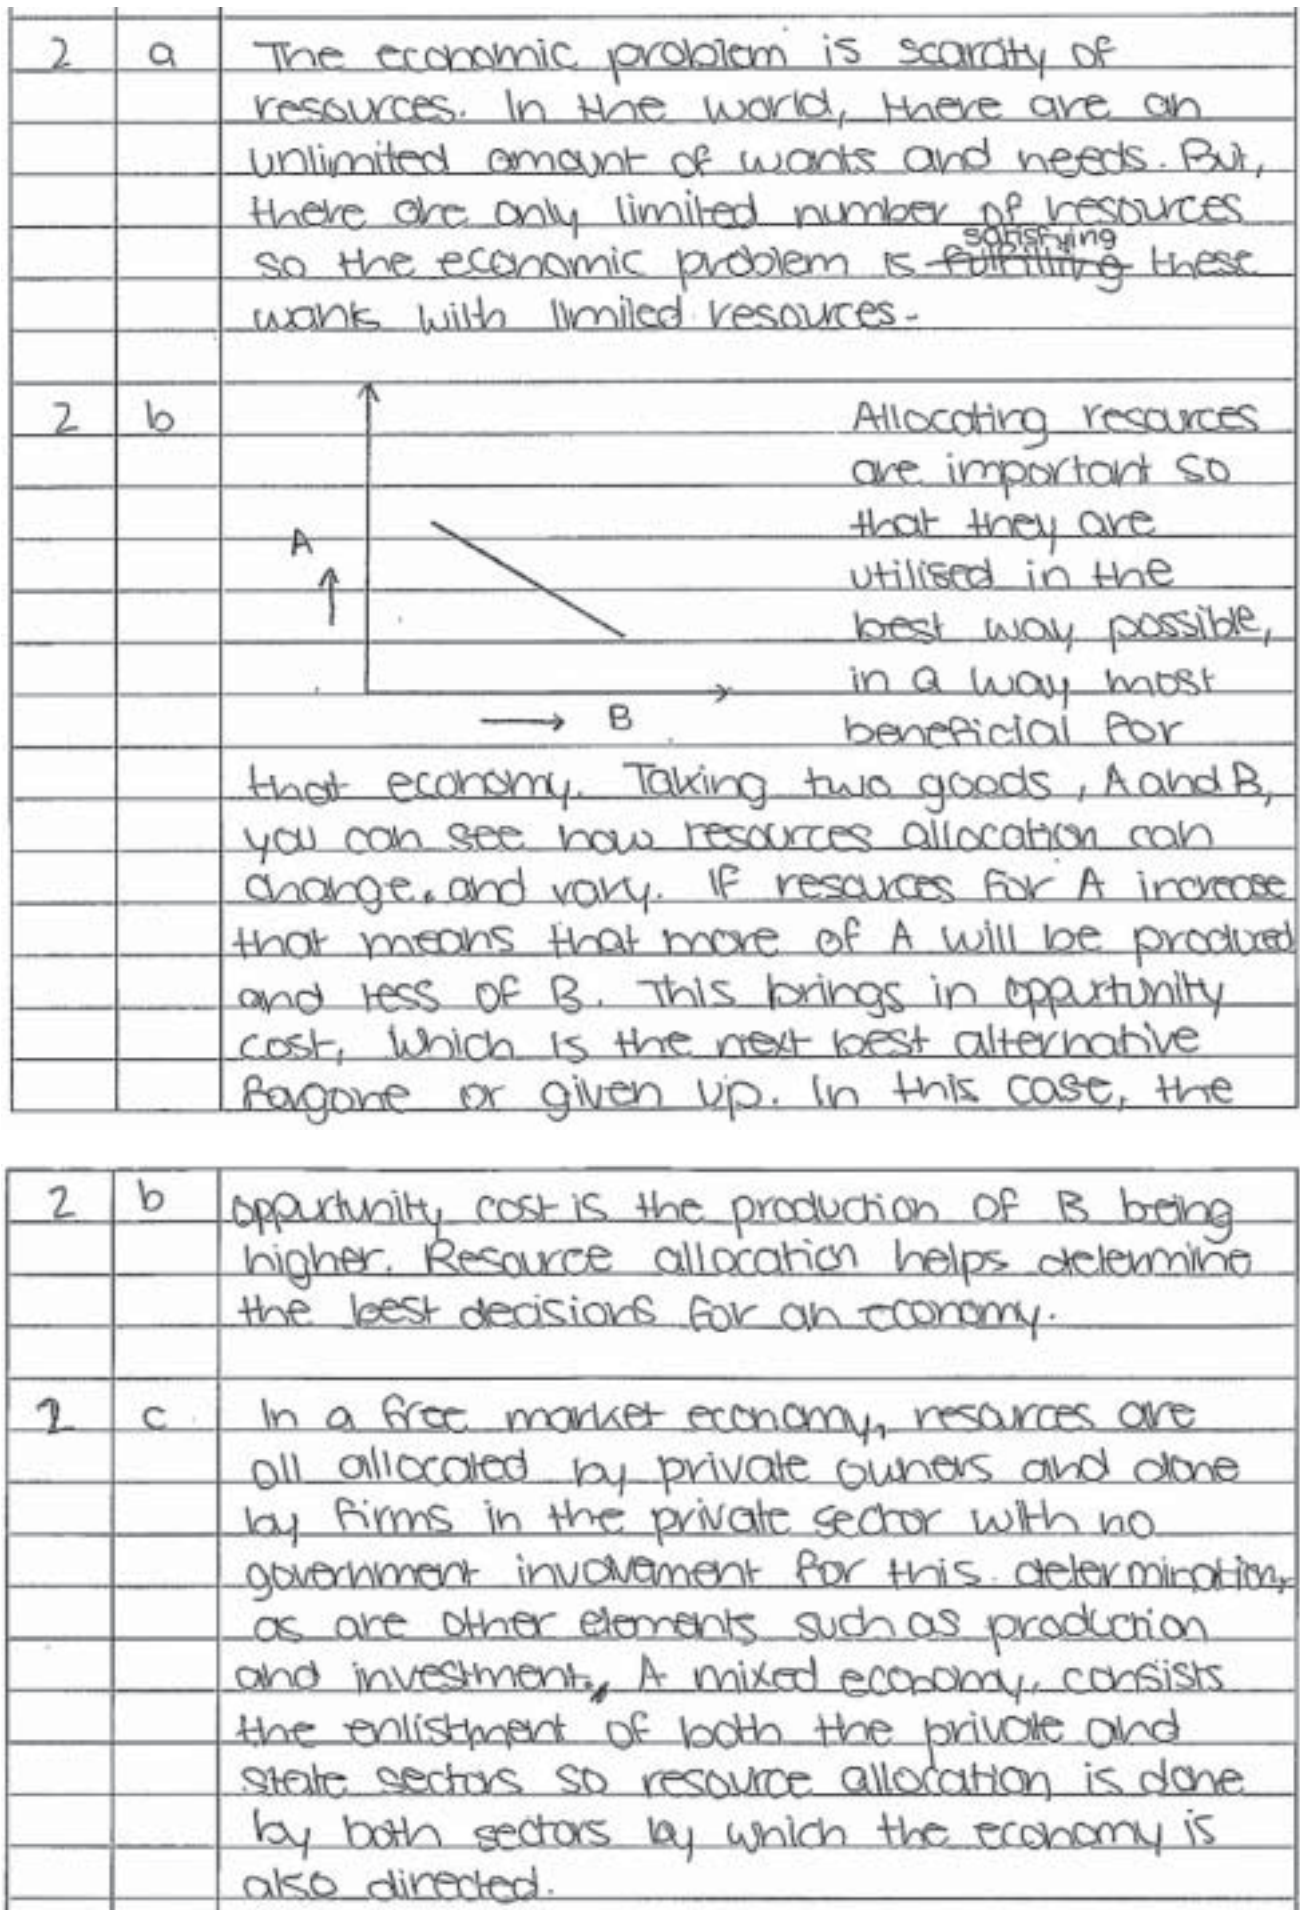 2 a The economic problem is scarcity of
resources. In the world, there are an
unlimited amount of wants and needs. But,
there are only limited number of resources
satisfying
so the economic problem is fulfilling these
wants with limited resources.
2 b Allocating resources
are important so
that they are
A
utilised in the
best way possible,
in a way most
B
beneficial for
that economy. Taking two goods, A and B,
you can see how resources allocation can
change. and vary. If resources for A increase
that means that more of A will be produced
and less of B. This brings in oppurtunity
cost, which is the next best alternative
forgone or given up. In this case, the
2 b oppurtunity cost is the production of B being
higher. Resource allocation helps determine
the best decisions for an economy.
2 c In a free market economy, resources are
all allocated by private owners and done
by firms in the private sector with no
government involvement for this determination,
as are other elements such as production
and investment. A mixed economy, consists
the enlistment of both the private and
state sectors so resource allocation is done
by both sectors by which the economy is
also directed.